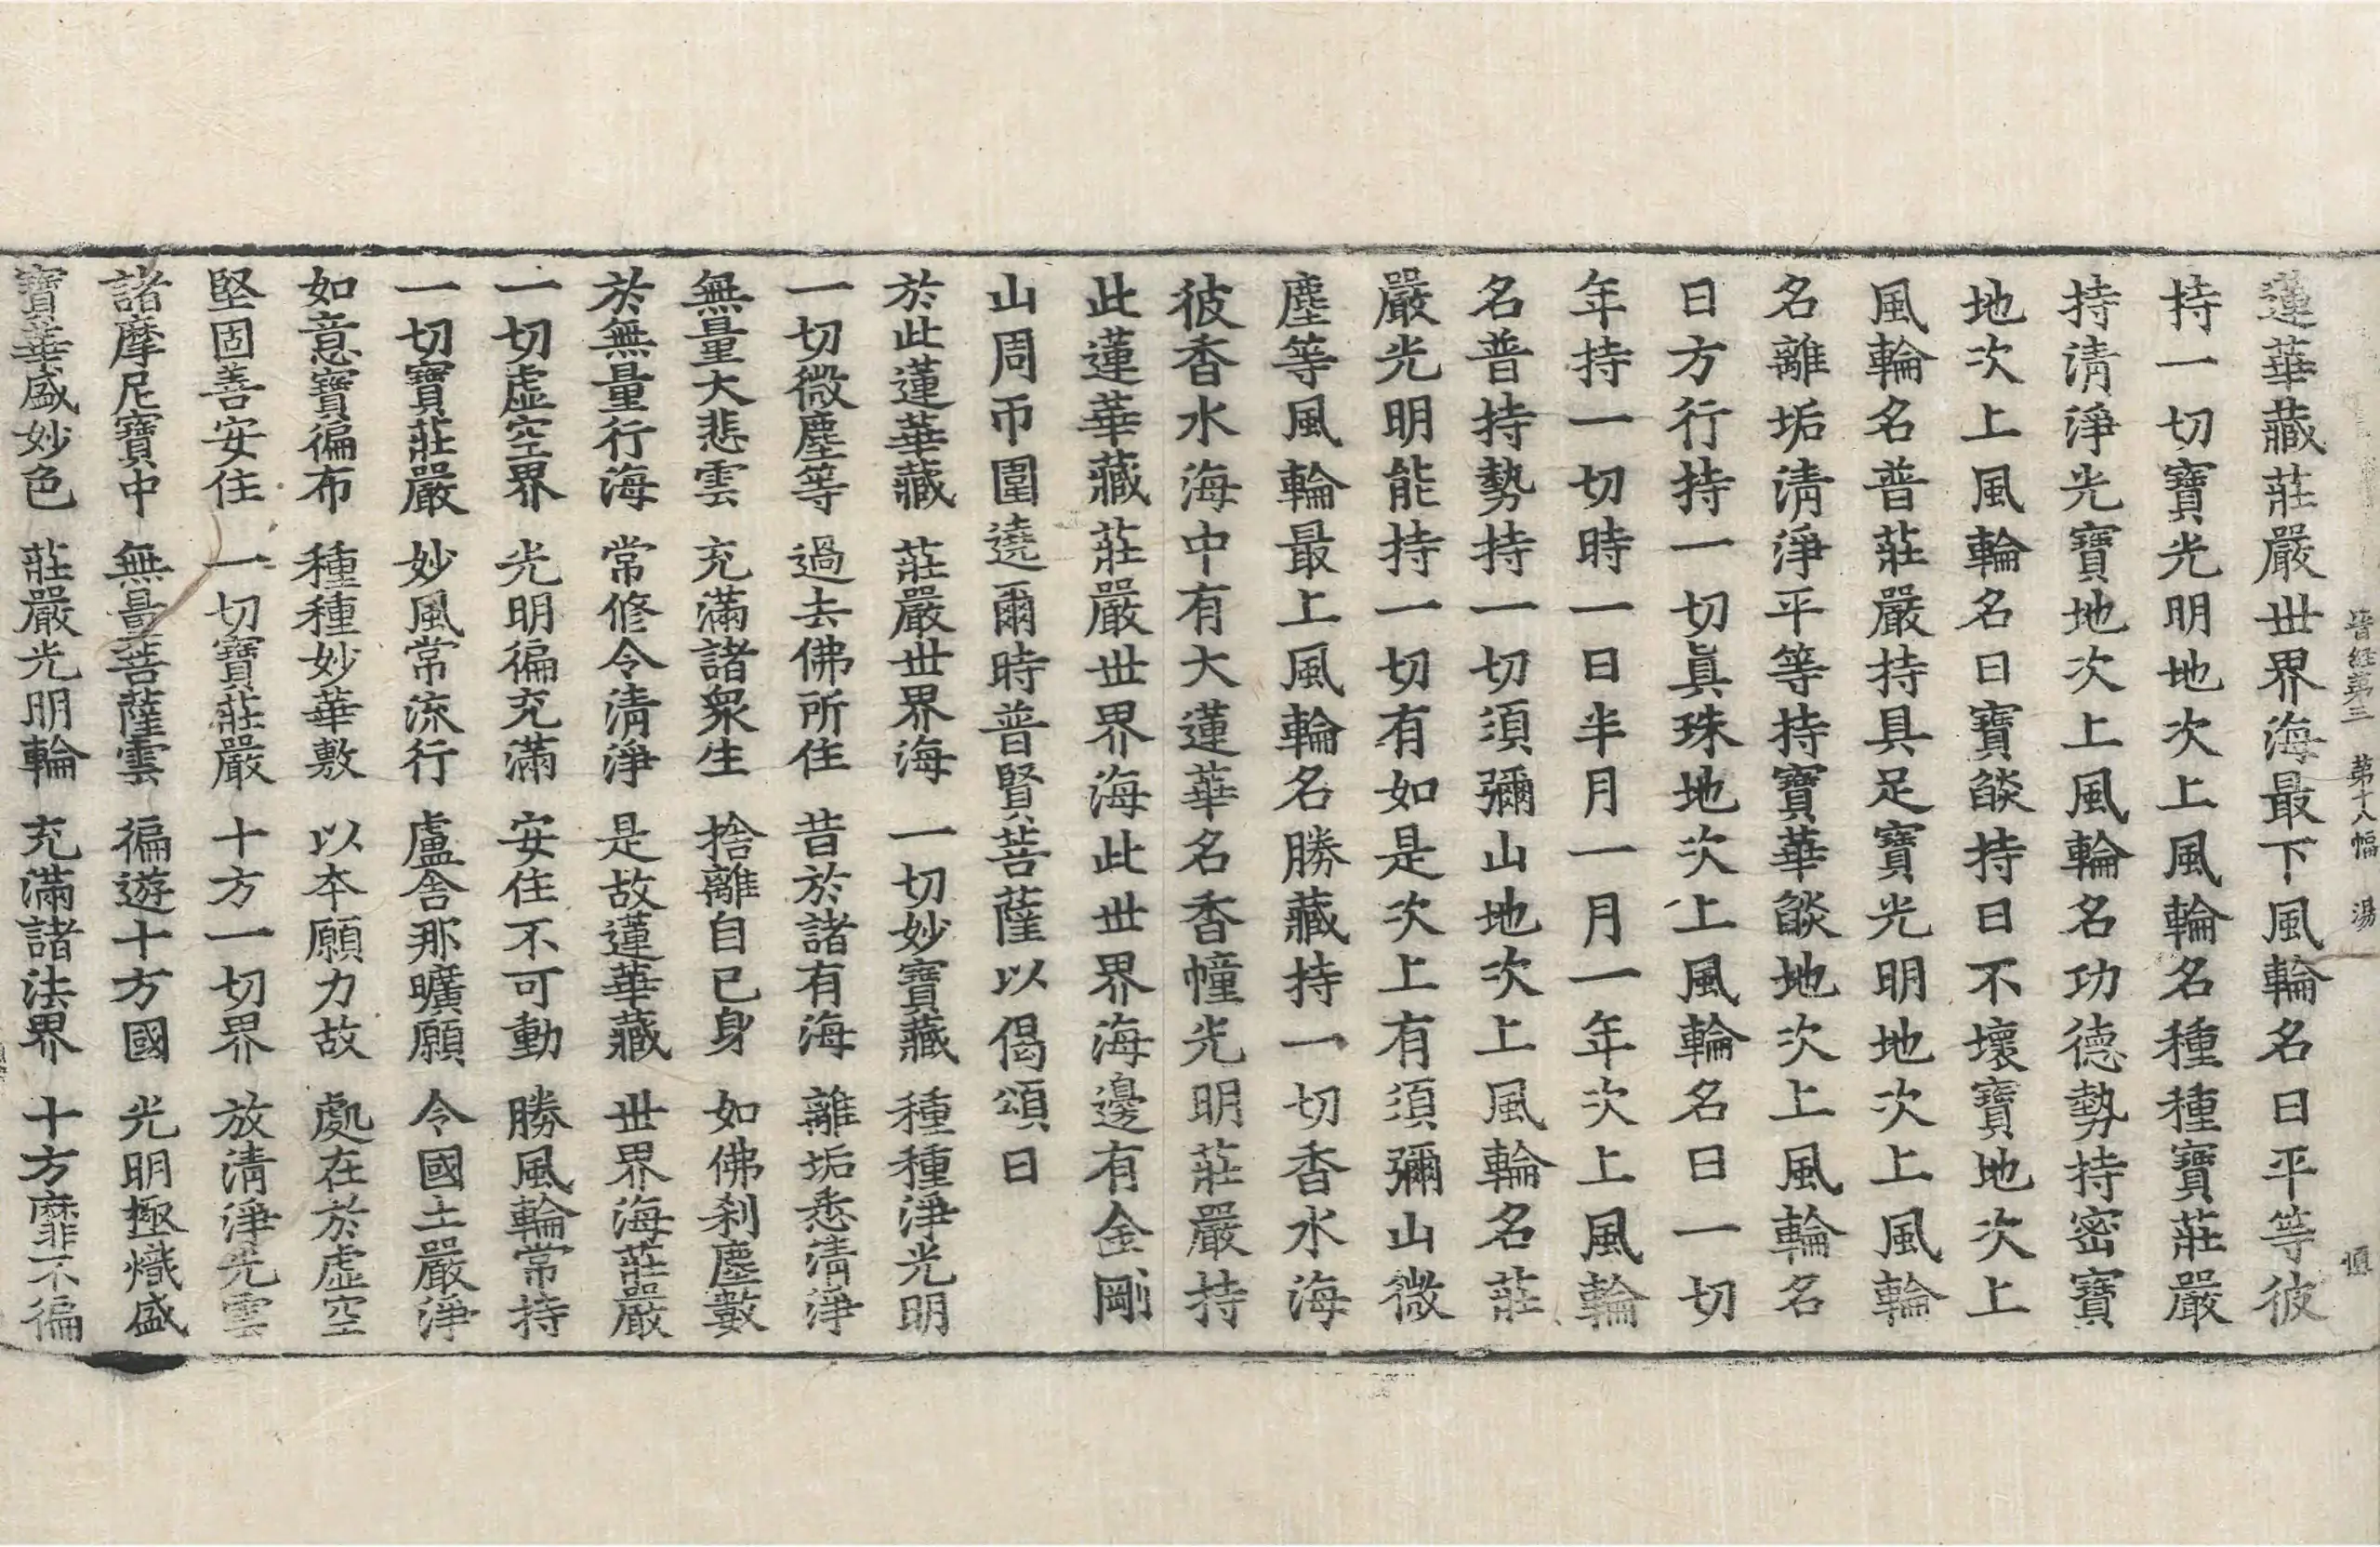 晉經第三　第十八幅　湯
蓮華藏莊嚴世界海最下風輪名曰平等彼
持一切寶光明地次上風輪名種種寶莊嚴
持清淨光寶地次上風輪名功德勢持密寶
地次上風輪名曰寶燄持日不壞寶地次上
風輪名普莊嚴持具足寶光明地次上風輪
名離垢清淨平等持寶華燄地次上風輪名
日方行持一切眞珠地次上風輪名曰一切
年持一切時一日半月一月一年次上風輪
名普持勢持一切須彌山地次上風輪名莊
嚴光明能持一切有如是次上有須彌山微
塵等風輪最上風輪名勝藏持一切香水海
彼香水海中有大蓮華名香幢光明莊嚴持
此蓮華藏莊嚴世界海此世界海邊有金剛
山周帀圍遶爾時普賢菩薩以偈頌曰
於此蓮華藏　莊嚴世界海　一切妙寶藏　種種淨光明
一切微塵等　過去佛所住　昔於諸有海　離垢悉清淨
無量大悲雲　充滿諸衆生　捨離自己身　如佛刹塵數
於無量行海　常修令清淨　是故蓮華藏　世界海莊嚴
一切虛空界　光明徧充滿　安住不可動　勝風輪常持
一切寶莊嚴　妙風常流行　盧舍那曠願　令國土嚴淨
如意寶徧布　種種妙華敷　以本願力故　處在於虛空
堅固善安住　一切寶莊嚴　十方一切界　放清淨光雲
諸摩尼寶中　無量菩薩雲　徧遊十方國　光明極熾盛
寶華盛妙色　莊嚴光明輪　充滿諸法界　十方靡不徧